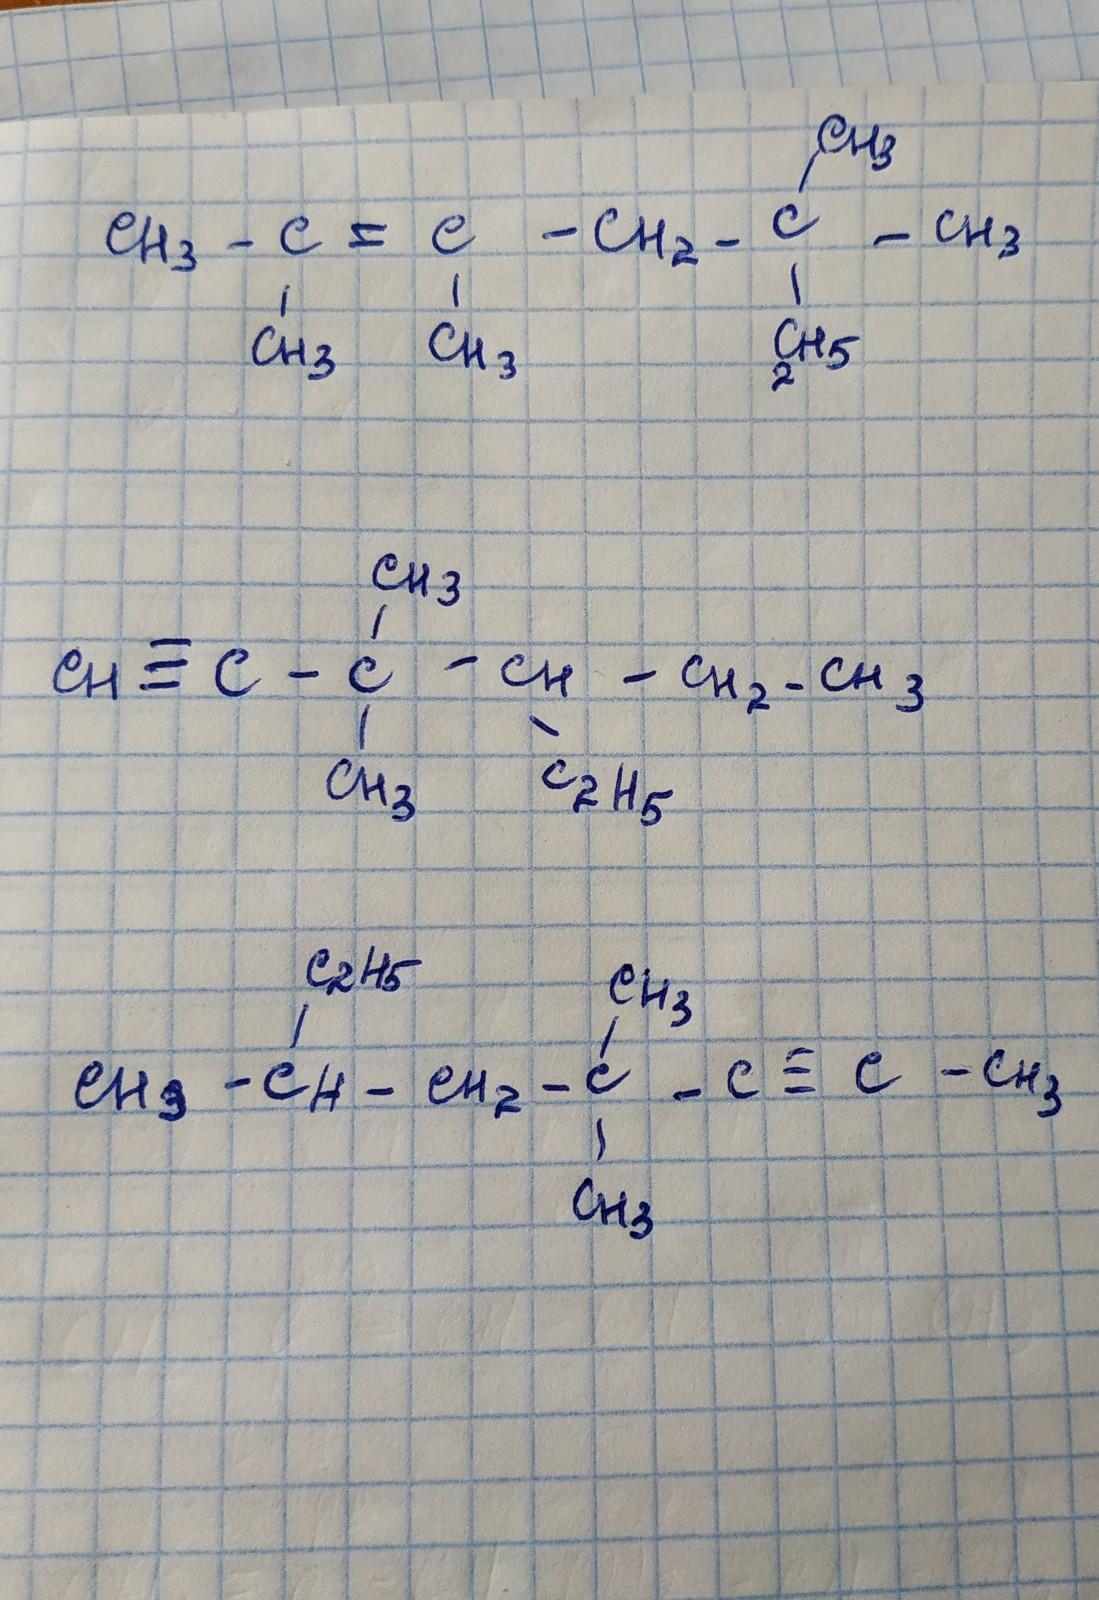 CH3
CH3 - C = C - CH2 - C - CH3
CH3 CH3 C2H5
CH3
CH ≡ C - C - CH - CH2 - CH3
CH3 C2H5
C2H5 CH3
CH3 - CH - CH2 - C - C ≡ C - CH3
CH3